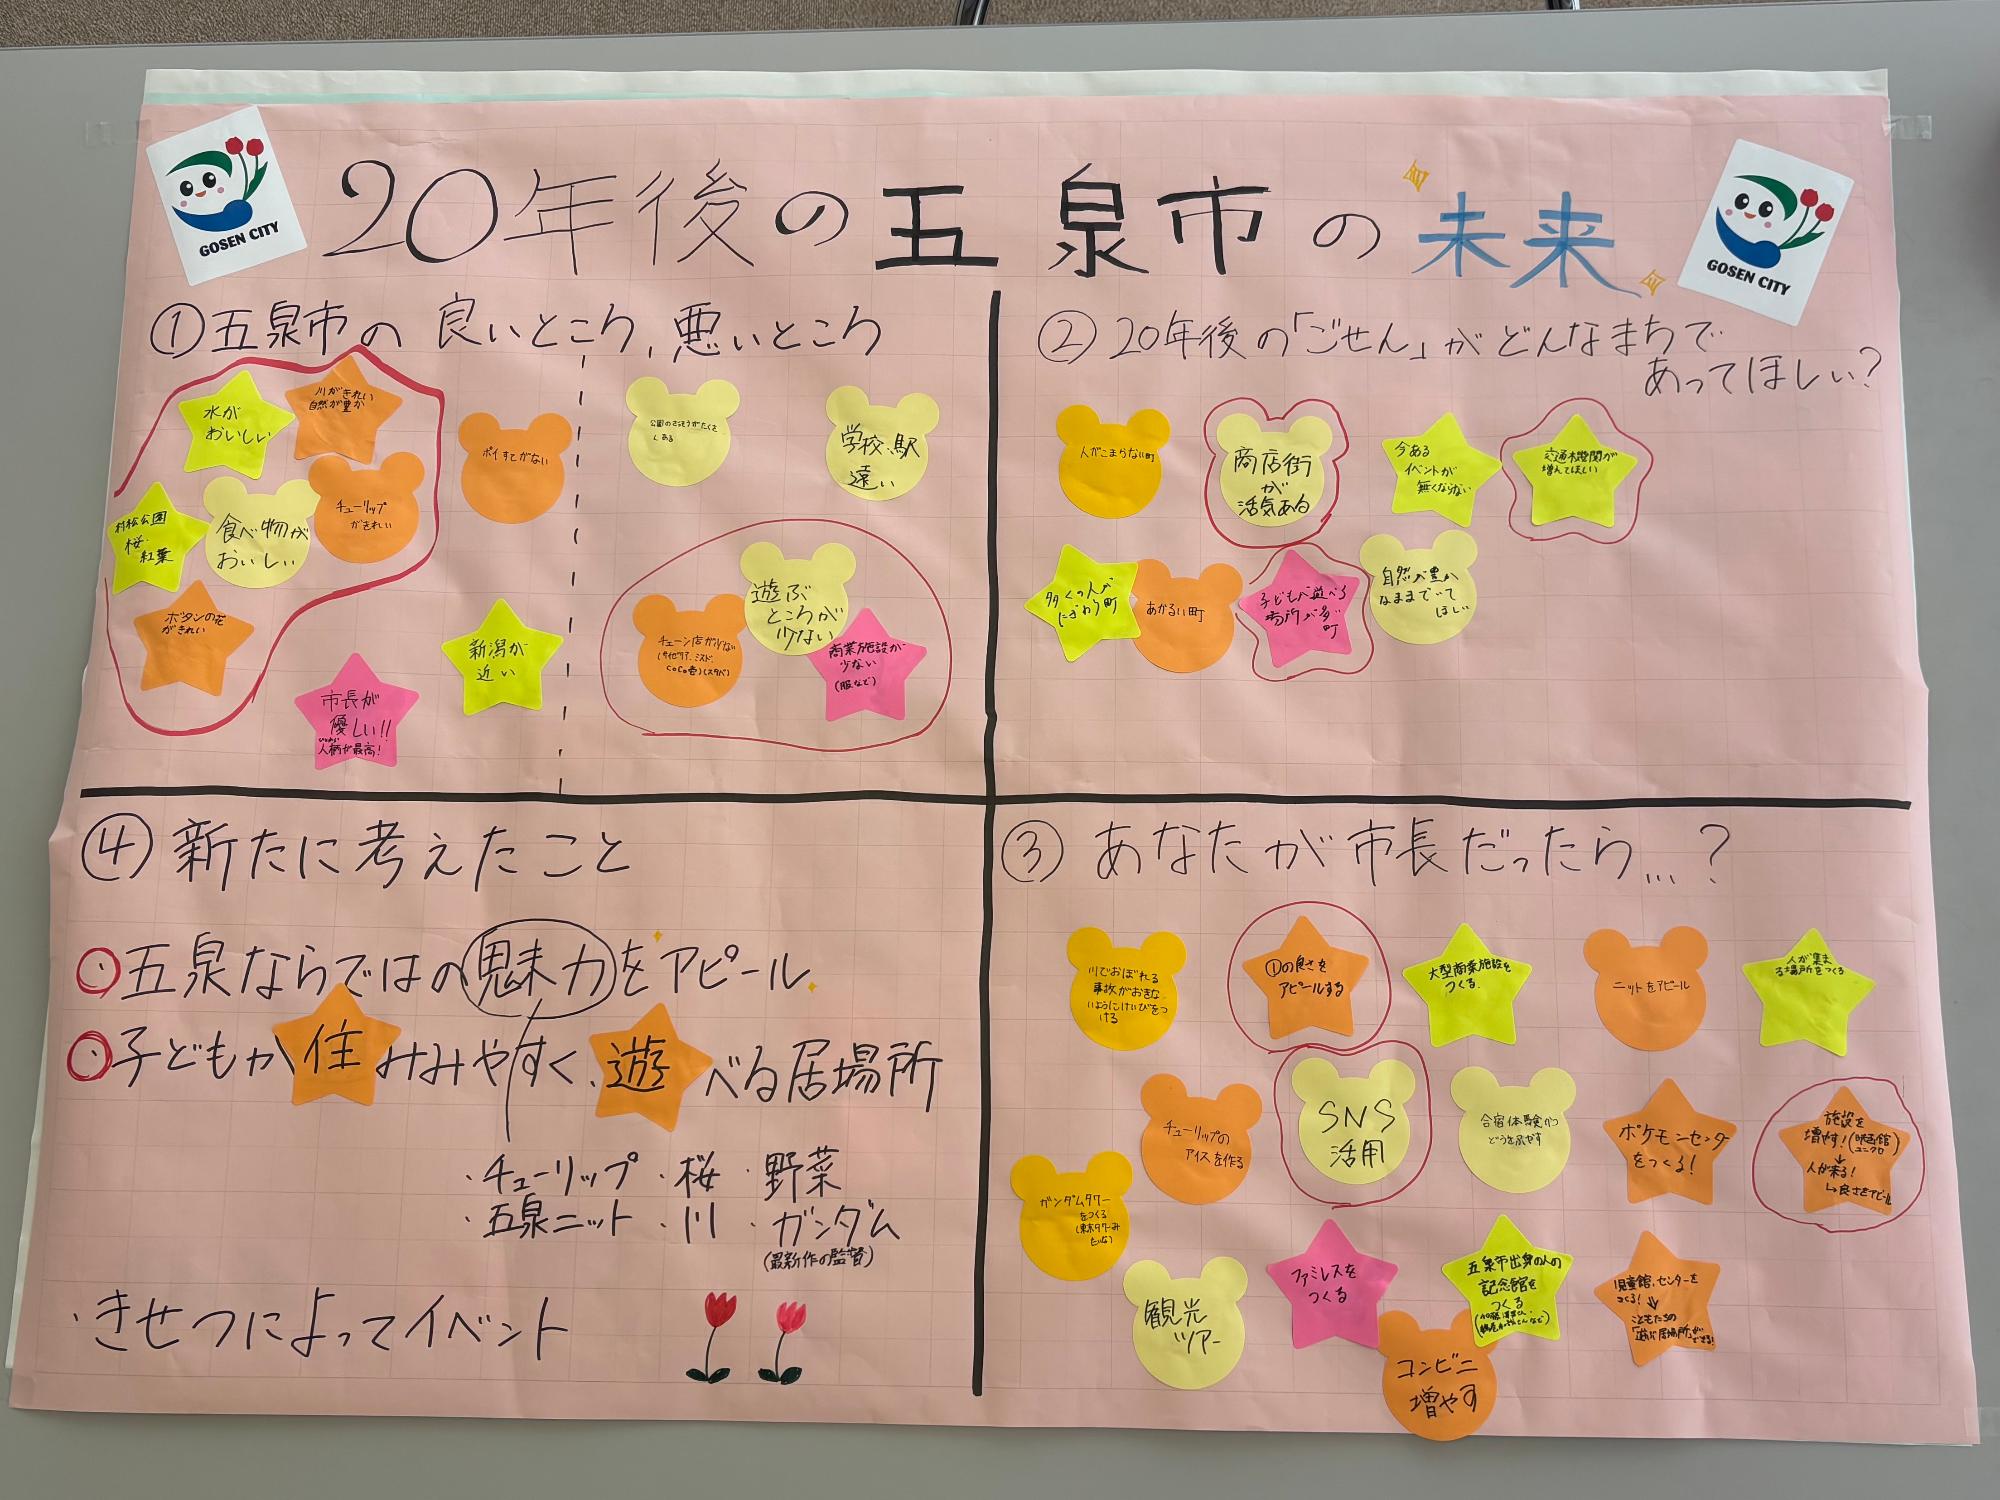 GOSEN CITY
20年後の五泉市の未来
GOSEN CITY
①五泉市の良いところ、悪いところ
水が
おいしい
川がきれい
自然が豊か
ポイすてがない
村松公園
桜・
紅葉
食べ物が
おいしい
チューリップ
がきれい
ボタンの花
がきれい
市長が
優しい!!
人柄が最高!
新潟が
近い
学校、駅
遠い
遊ぶ
ところが
少ない
チェーン店が少ない
商業施設が
少ない
(服など)
②20年後の「ごせん」がどんなまちで
あってほしい?
人がこまらない町
商店街
が
活気ある
今ある
イベントが
無くならない
交通機関が
増えてほしい
多くの人が
にぎわう町
あかるい町
子どもが遊べる
場所が多い
町
自然が豊か
なままでいて
ほしい
④新たに考えたこと
五泉ならではの魅力をアピール
子どもが住みみやすく、遊べる居場所
・チューリップ ・桜 ・野菜
・五泉ニット ・川 ・ガンダム
(最新作の監督)
・きせつによってイベント
③あなたが市長だったら…?
川でおぼれる
事故がおきな
いようにけいびをつ
ける
①の良さを
アピールする
大型商業施設を
つくる
ニットをアピール
人が集ま
る場所をつくる
チューリップの
アイスを作る
SNS
活用
合宿体験かつ
どうを増やす
ポケモンセンター
をつくる!
施設を
増やす!(映画館
ユニクロ)
↓
人が来る!
↳良さをアピール
ガンダムタワー
をつくる
(東京タワーみ
たいな)
観光
ツアー
ファミレスを
つくる
五泉市出身の人の
記念館を
つくる
コンビニ
増やす
児童館、センターを
つくる!
↓
こどもたちの
「遊ぶ居場所」ができる!